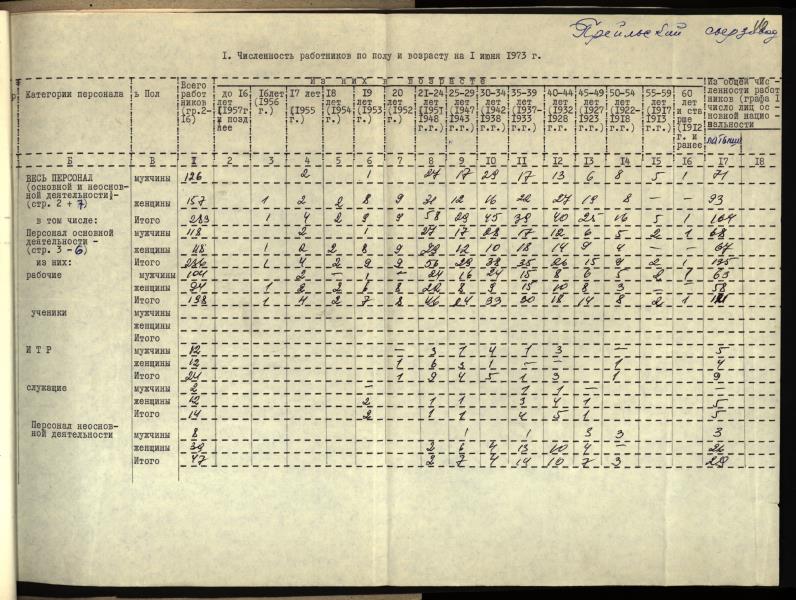 Прейльский сырзавод
I. Численность работников по полу и возрасту на I июня 1973 г.
Категории персонала Пол Всего работников (гр.2-16) из них в возрасте Из общей численности работников (графа I число лиц основной национальности
до 16 лет (1957г. и позднее 16лет (1956 г.) 17 лет (1955 18 лет (1954 г.) 19 лет (1953 г.) 20 лет (1952 г.) 21-24 лет (1951 1948 г.г.) 25-29 лет (1947 1943 г.г.) 30-34 лет (1942- 1938 г.г.) 35-39 лет (1937- 1933 г.г.) 40-44 лет (1932 1928 г.г.) 45-49 лет (1927 1923 г.г.) 50-54 лет (1922- 1918 г.г.) 55-59 лет (1917 1913 г.г.) 60 лет и старше (1912 г. и ранее латыши
Б В I 2 3 4 5 6 7 8 9 10 11 12 13 14 15 16 17 18
ВЕСЬ ПЕРСОНАЛ мужчины 126 2 1 27 17 29 17 13 6 8 5 1 71
(основной и неосновной деятельности)-
(стр. 2 + 7) женщины 157 1 2 2 8 9 31 12 16 22 27 19 8 — 93
в том числе: Итого 283 1 4 2 9 9 58 29 45 39 40 25 16 5 1 164
Персонал основной мужчины 118 2 1 27 17 28 17 12 6 5 2 1 68
деятельности -
(стр. 3-6) женщины 1 2 2 8 9 29 12 10 18 14 9 4 — — 67
из них: Итого 236 1 4 2 9 9 56 29 38 35 26 15 9 2 1 135
рабочие мужчины 104 2 — 1 — 24 16 24 15 8 6 5 2 1 63
женщины 94 1 2 2 6 8 22 8 9 15 10 8 3 — 58
Итого 198 1 4 2 7 8 46 24 33 30 18 14 8 2 1 121
ученики мужчины
женщины
Итого
И Т Р мужчины 12 — 3 1 4 1 3 — 5
женщины 12 1 6 3 1 — — 1 4
Итого 24 1 9 4 5 1 3 1 9
служащие мужчины 2 — 1 1 — —
женщины 12 2 1 1 3 4 1 5
Итого 14 2 1 1 4 5 1 5
Персонал неосновной деятельности мужчины 8 1 1 3 3 3
женщины 39 2 6 4 13 10 4 — 26
Итого 47 2 7 4 14 10 7 3 29